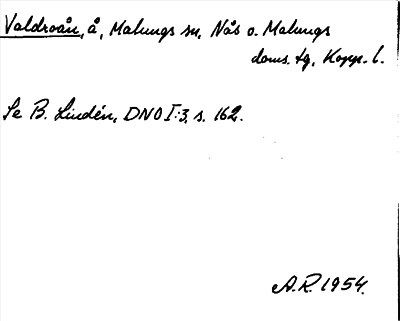 Valdroån, å, Malungs sn, Nås o. Malungs
doms. tg, Kopp. l.
Se B. Lindén, DNO I:3, s. 162.
A.R. 1954.